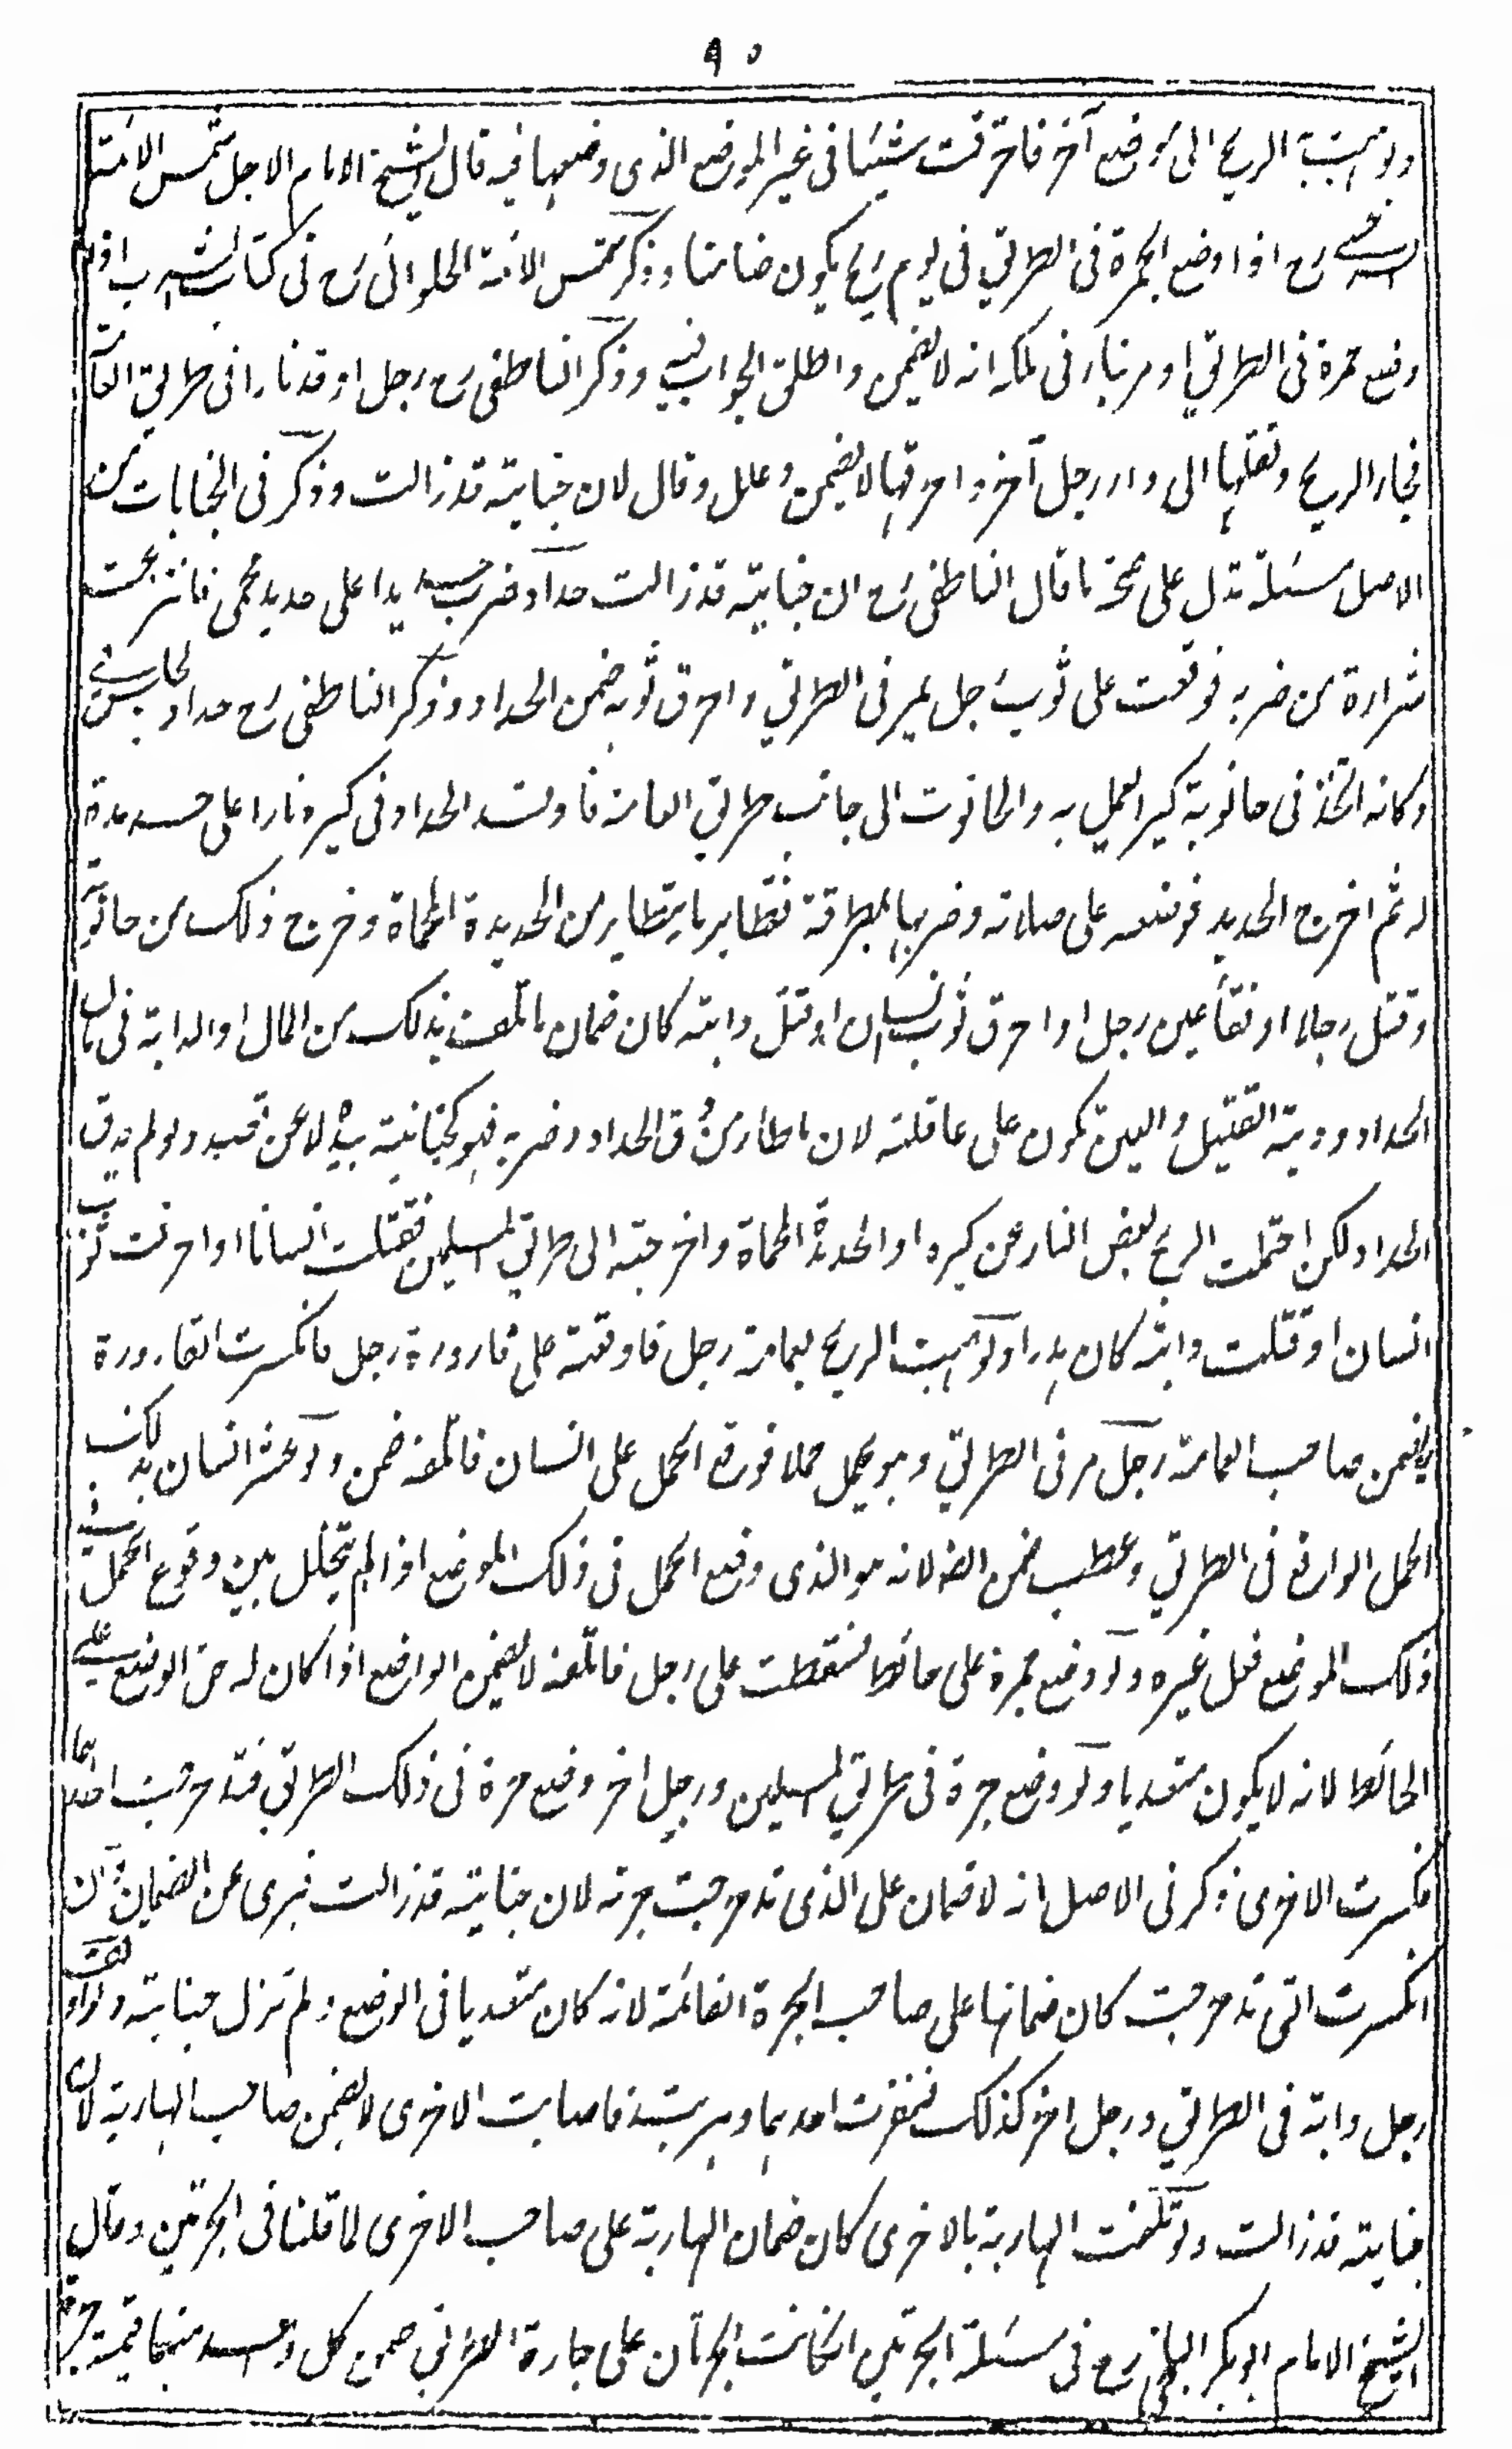 ٩٠
ولو هبت الريح الى موضع آخر فاحرقت شيئا فى غير الموضع الذى وضعها فيه قال الشيخ الامام الاجل شمس الائمة
السرخسى رح اذا وضع الجمرة فى الطريق فى يوم ريح يكون ضامنا وذكر شمس الائمة الحلوائى رح فى كتاب الشرب اذا
وضع جمرة فى الطريق او مر بنار فى ملكه انه لا يضمن واطلق الجواب فيه وذكر الناطفى رح رجل اوقد نارا فى طريق العامة
فجاء الريح ونقلها الى دار رجل آخر واحرقها لا يضمن وعلل وقال لان جنايته قد زالت وذكر فى الجنايات من
الاصل مسئلة تدل على صحة ما قال الناطفى رح ان جنايته قد زالت حداد ضرب حديدا على حديد محمى فانتزعت
شرارة من ضربه فوقعت على ثوب رجل يمر فى الطريق واحرق ثوبه ضمن الحداد وذكر الناطفى رح حداد يجلس فى
دكانه اتخذ فى حانوته كيرا يعمل به والحانوت الى جانب طريق العامة فاوقد الحداد فى كيره نارا على حديدة
له ثم اخرج الحديد فوضعه على صلاته وضربها بمطرقة فتطاير ما يتطاير من الحديدة المحماة وخرج ذلك من حانوته
وقتل رجلا او فقأ عين رجل او احرق ثوب انسان او قتل دابته كان ضمان ما تلف بذلك من المال او الدابة فى مال
الحداد ودية القتيل والعين تكون على عاقلته لان ما طار من دق الحداد وضربه فهو كجنايته بيده لا عن قصد ولو لم يدق
الحداد لكن احتملت الريح بعض النار عن كيره او الحديدة المحماة واخرجته الى طريق المسلمين فقتلت انسانا او احرقت ثوب
انسان او قتلت دابته كان هدرا ولو هبت الريح بعمامة رجل فاوقعته على قارورة رجل فانكسرت القارورة
لا يضمن صاحب العمامة رجل مر فى الطريق وهو يحمل حملا فوقع الحمل على انسان فاتلفه ضمن ولو عثر انسان بذلك
الحمل الواقع فى الطريق وعطب ضمن ايضا لانه هو الذى وضع الحمل فى ذلك الموضع اذا لم يتخلل بين وقوع الحمل فى
ذلك الموضع فعل غيره ولو وضع جرة على حائط فسقطت على رجل فاتلفه لا يضمن الواضع اذا كان له حق الوضع على
الحائط لانه لا يكون متعديا ولو وضع جرة فى طريق المسلمين ورجل اخر وضع جرة فى ذلك الطريق فتدحرجت احداهما
فكسرت الاخرى ذكر فى الاصل انه لا ضمان على الذى تدحرجت جرته لان جنايته قد زالت فبرى عن الضمان وان
انكسرت التى تدحرجت كان ضمانها على صاحب الجرة القائمة لانه كان متعديا فى الوضع ولم تزل جنايته ولو اوقف
رجل دابة فى الطريق ورجل اخر كذلك فنفرت احدهما وهربت فاصابت الاخرى لا يضمن صاحب الهاربة لان
جنايته قد زالت ولو تلفت الهاربة بالاخرى كان ضمان الهاربة على صاحب الاخرى لما قلنا فى الجرتين وقال
الشيخ الامام ابو بكر البلخى رح فى مسئلة الجرتين ان كانت الجرتان على جارة الطريق ضمن كل واحد منهما قيمة جرة